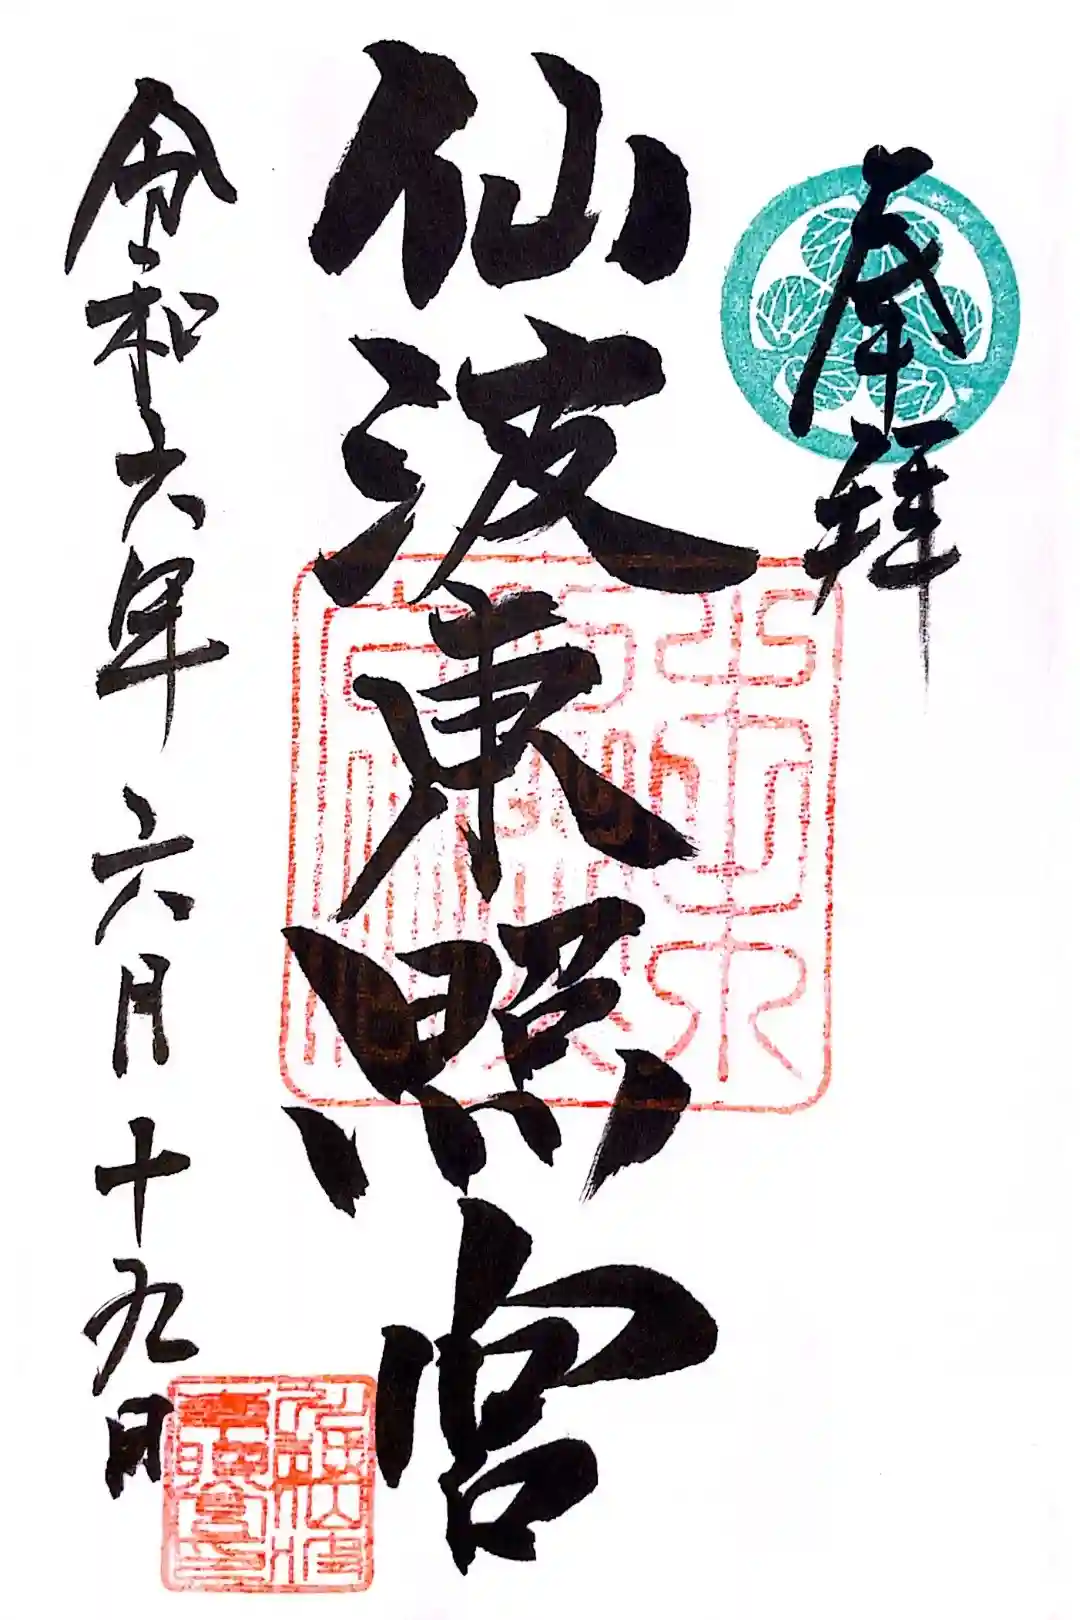 奉拝
仙波東照宮
令和六年六月十九日